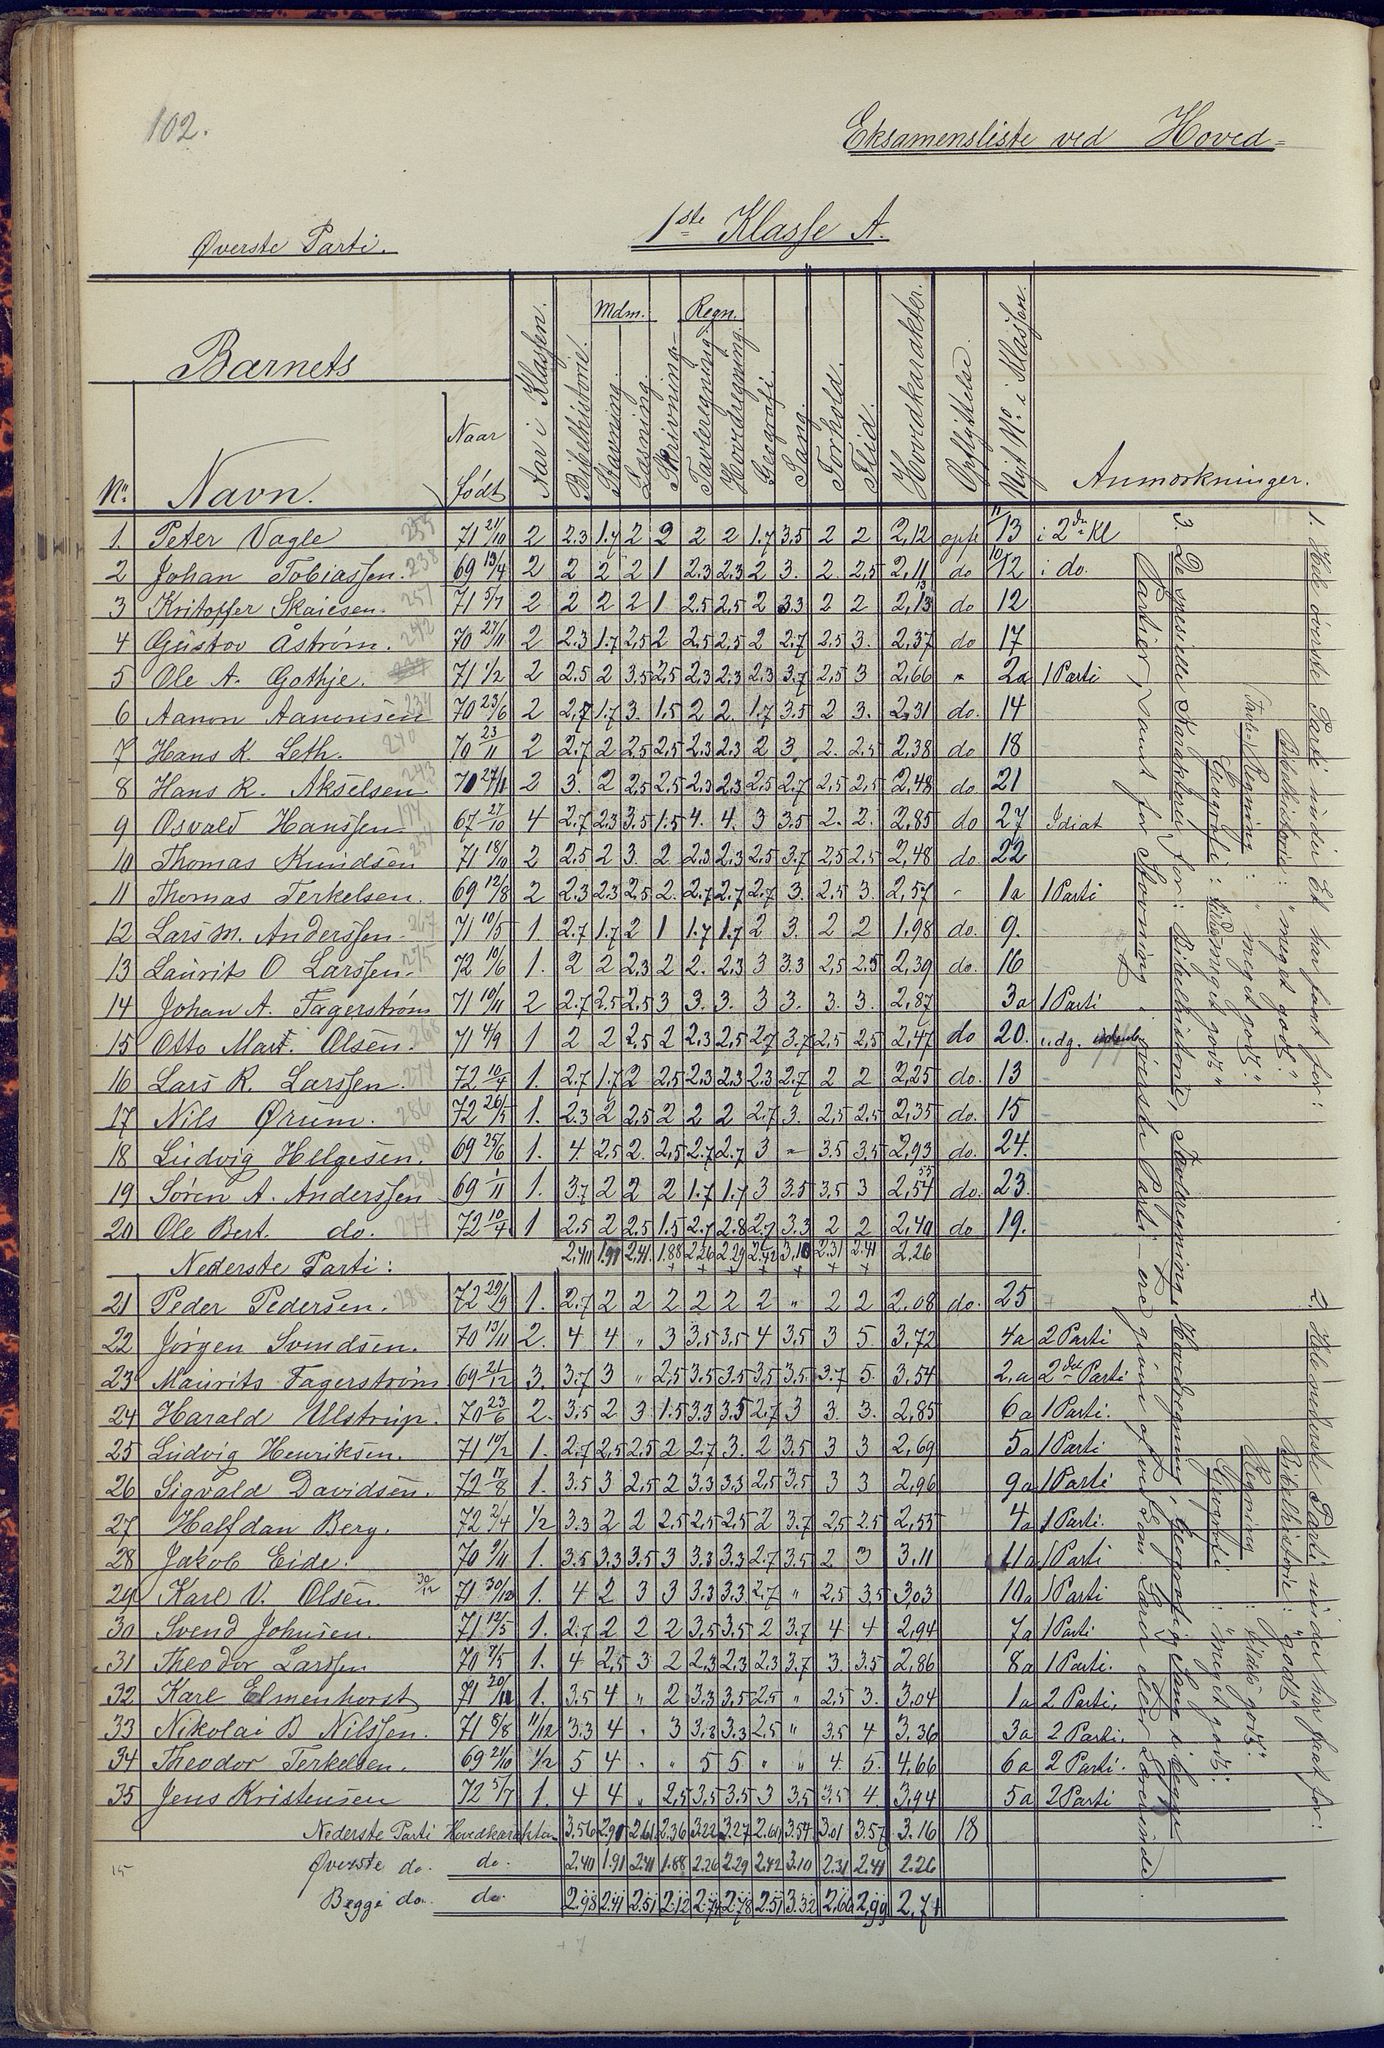 102.
Eksamensliste ved Hoved=
1ste Klasse A.
Øverste Parti.
Barnets
No. Navn. Naar Født Aar i Klassen. Bibelhistorie. Mdm. Stavning. Læsning. Skrivning. Regn. Tavleregning. Hovedregning. Geografi. Sang. Forhold. Flid. Hovedkarakter. Opflyttelse. Nyt No. i Klassen. Anmærkninger.
1. Peter Vagle 71 21/10 2 2.3 1.7 2 2 2 2 1.7 3.5 2 2 2,12 opfl 13 i 2den Kl
2 Johan Tobiassen. 238 69 13/4 2 2 2 2 1 2.3 2.3 2 3. 2. 2,5 2,11 do 12 i do.
3 Kritoffer Skaiesen. 251 71 5/7 2 2 2 2 1 2,5 2,5 2 3.3 2 2 2,13 do 12
4 Gustov Åstrøm. 242 70 27/11 2 2.3 1.7 2,5 2 2,5 2,5 2 2.7 2,5 3. 2,37 do 17
5 Ole A. Gothje. 71 1/2 2 2.5 2 3.5 2,5 2.3 2.3 2.3 3.7 2,5 3 2,66 " 2a 1 Parti
6 Aanon Aanonsen 234 70 23/6 2 2,7 1.7 3. 1.5 2 2. 1.7 3.5 2 3. 2,31 do. 14
7 Hans K. Leth. 240 70 23/11 2 2.7 2 2,5 2,5 2.3 2.3 2 3 2. 2.5 2,38 do 18
8 Hans R. Akselsen 243 70 27/11 2 3. 2 2,5 2,5 2,3 2,3 2,5 2.7 2,5 2,5 2,48 do. 21
9 Osvald Hanssen 67 27/10 4 2.7 2.3 3.5 1.5 4. 4. 3 3.5 2. 2. 2,85 do 27 Idiat
10 Thomas Knudsen 254 71 18/10 2 2.5 2 3. 2 2.3 2.3 2.5 3.7 2,5 2,5 2,48 do. 22
11 Thomas Terkelsen. 69 12/8 2 2.3 2.3 2,5 2. 2.7 2.7 2.7 3. 2.5 3. 2,57 - 1a 1 Parti
12 Lars M. Anderssen. 267 71 10/5 1. 2.7 1.7 2 1 1.7 1.7 2 3. 2 2 1.98 do. 9.
13 Laurits O Larssen. 275 72 10/6 1. 2 2 2.3 2 2. 2.3 3 3.3 2,5 2.5 2,39 do. 16
14 Johan A. Fagerstrøm 71 10/11 2 2.7 2.5 2.5 3 3. 3. 3 3. 3. 3. 2,87 3a 1 Parti
15 Otto Mart. Olsen. 268 71 4/9 1 2 2 2.5 2 2.3 2,5 2,7 3.7 2,5 2,5 2,47 do 20. udg.
16 Lars R. Larssen. 72 10/4 1. 2.7 1.7 2 2,5 2.3 2.3 2.3 2.7 2 2 2,25 do. 13
17 Nils Ørum. 286 72 26/5 1. 2.3 2 2,5 2 2 2 2.7 3. 2,5 2,5 2,35 do. 15
18 Ludvig Helgesen. 69 25/6 1. 4. 2,5 2. 2,5 2.7 2.7 3 " 3.5 3.5 2,93 do. 24.
19 Søren A. Anderssen 281 69 1/11 1. 3.7 2 2 2 1.7 1.7 3 3.5 3,5 3 2,54 do. 23.
20 Ole Bert. do. 277 72 10/4 1 2.5 2 2.5 1.5 2.7 2.8 2.7 3.3 2 2 2,40 do 19.
Nederste Parti: 2.40 1.91 2.41 1.88 2.26 2.29 2.42 3.10 2.31 2.41 2.26
21 Peder Pedersen. 72 29/9 1. 2.7 2 2 2 2 2 2 " 2 2 2.08 do. 25
22 Jørgen Svendsen. 70 13/11 2. 4 4 " 3 3.5 3.5 4 3.5 3 5. 3,72 4a 2 Parti
23 Maurits Fagerstrøm 69 21/12 3. 3.7 3 " 2,5 3.5 3.5 3.5 3.5 3.7 5. 3.54 2.a 2den Parti
24 Harald Ulstrup. 70 23/6 2. 3.5 2 3 1.5 3.3 3.5 2.7 3 3. 3. 2,85 6a 1 Parti.
25 Ludvig Henriksen. 71 10/2 1. 2.7 2,5 2.5 2 2.7 3. 2 3.5 3 3 2,69 5a 1 Parti
26 Sigvald Davidsen. 72 17/8 1. 3.5 3 2,5 2 3.3 3.3 2,5 3.5 3 3 2,96 9a 1 Parti
27 Halfdan Berg. 72 2/4 1/2 3.3 2 2 2.5 2.5 2.5 2 3.7 2.5 2.5 2,53 4a 1 Parti.
28 Jakob Eide. 70 9/11 1. 3.5 3.3 3.5 3 3.3 3.3 2.7 3.5 2 3 3.11 11a 1 Parti
29 Karl V. Olsen. 30/12 71 30/12 1. 4 2 3 3 3.3 3.3 2.7 " 2,5 3.5 3,03 10a 1 Parti
30 Svend Johnsen. 71 12/5 1. 2.7 2 2 2 3.5 3.5 2 3.7 4 4 2,94 7a 1 Parti
31 Theodor Larssen 70 7/5 1. 4 2,5 3 2 2,3 2.3 2.3 3.7 3. 3.5 2,86 8a 1 Parti.
32 Karl Elmenhorst 71 20/11 1. 3.5 4 " 2 3.3 3.5 2.5 " 2.5 3. 3,04 1a 2 Parti.
33 Nikolai B Nilssen. 71 8/8 11/12 3.3 4 " 3 3.3 3.3 2.5 " 3.5 4 3,36 3a 2 Parti.
34 Theodor Terkelsen. 69 21/10 1/2 5 4 " " 5 5 " " 4. 5. 4,66 6a 2 Parti.
35 Jens Kristensen 72 5/7 1. 4 4 " 2,5 3.5 3.5 3 3,5 3,5 4. 3,94 5a 2 Parti
Nederste Parti Hovedkarakter 3.56 2.90 2.61 2.36 3.22 3.27 2.60 3.54 3.01 3.57 3.16 18
15 Øverste do. do. 2.40 1.91 2.41 1.88 2.26 2.29 2.42 3.10 2.31 2.41 2.26
Begge do. do. 2.98 2.41 2.51 2.12 2.74 2.78 2.51 3.32 2,66 2,99 2,71
1. Hele øverste Parti under Et har faat for:
Bibelhistorie: "meget godt".
Tavle Regning: "meget godt".
Geografi: "meget godt"
2. Hele nederste Parti under Et har faat for:
Bibelhistorie: "godt".
Regning: godt".
Geografi: "meget godt".
3. De specielle Karakterer for: Bibelhistorie, Tavleregning, Hovedregning, Geografi og Sang i begge
Partier, samt for Stavning i øverste Parti ere givne af ved Kom. Lærer eller Lærerinde.